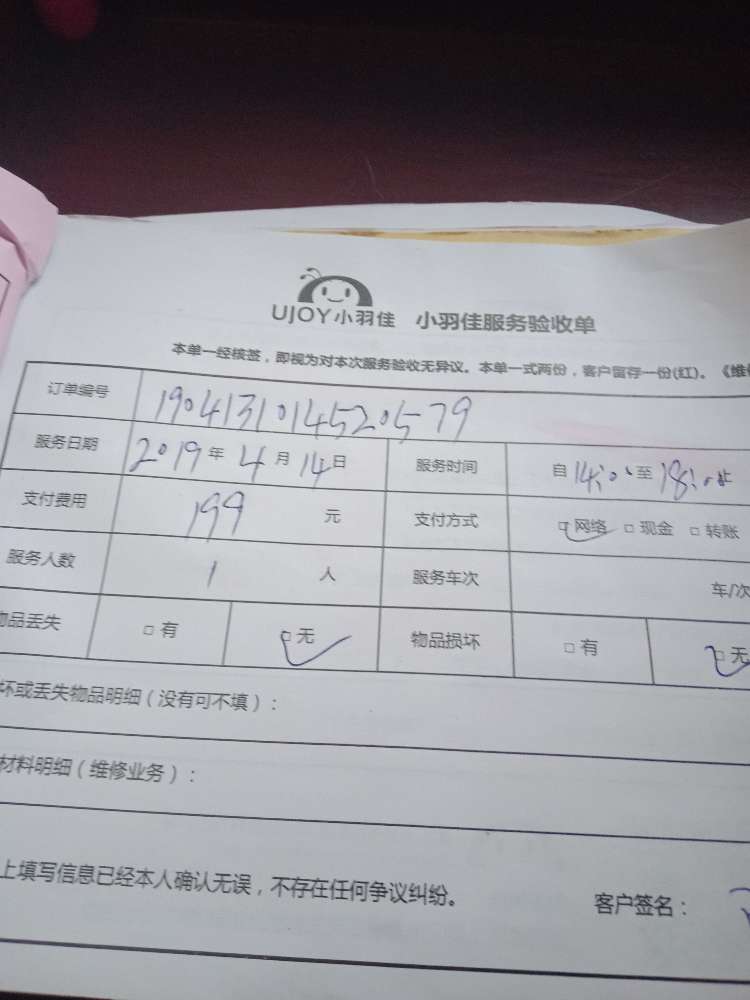 UJOY小羽佳 小羽佳服务验收单
本单一经核签，即视为对本次服务验收无异议。本单一式两份，客户留存一份(红)。《维修
订单编号 1904131014520579
服务日期 2019 年 4 月 14 日 服务时间 自 14:00 至 18:00 止
支付费用 199 元 支付方式 □ 网络 □ 现金 □ 转账
服务人数 1 人 服务车次 车/次
物品丢失 □ 有 □ 无 物品损坏 □ 有 □ 无
坏或丢失物品明细（没有可不填）：
材料明细（维修业务）：
上填写信息已经本人确认无误，不存在任何争议纠纷。 客户签名：